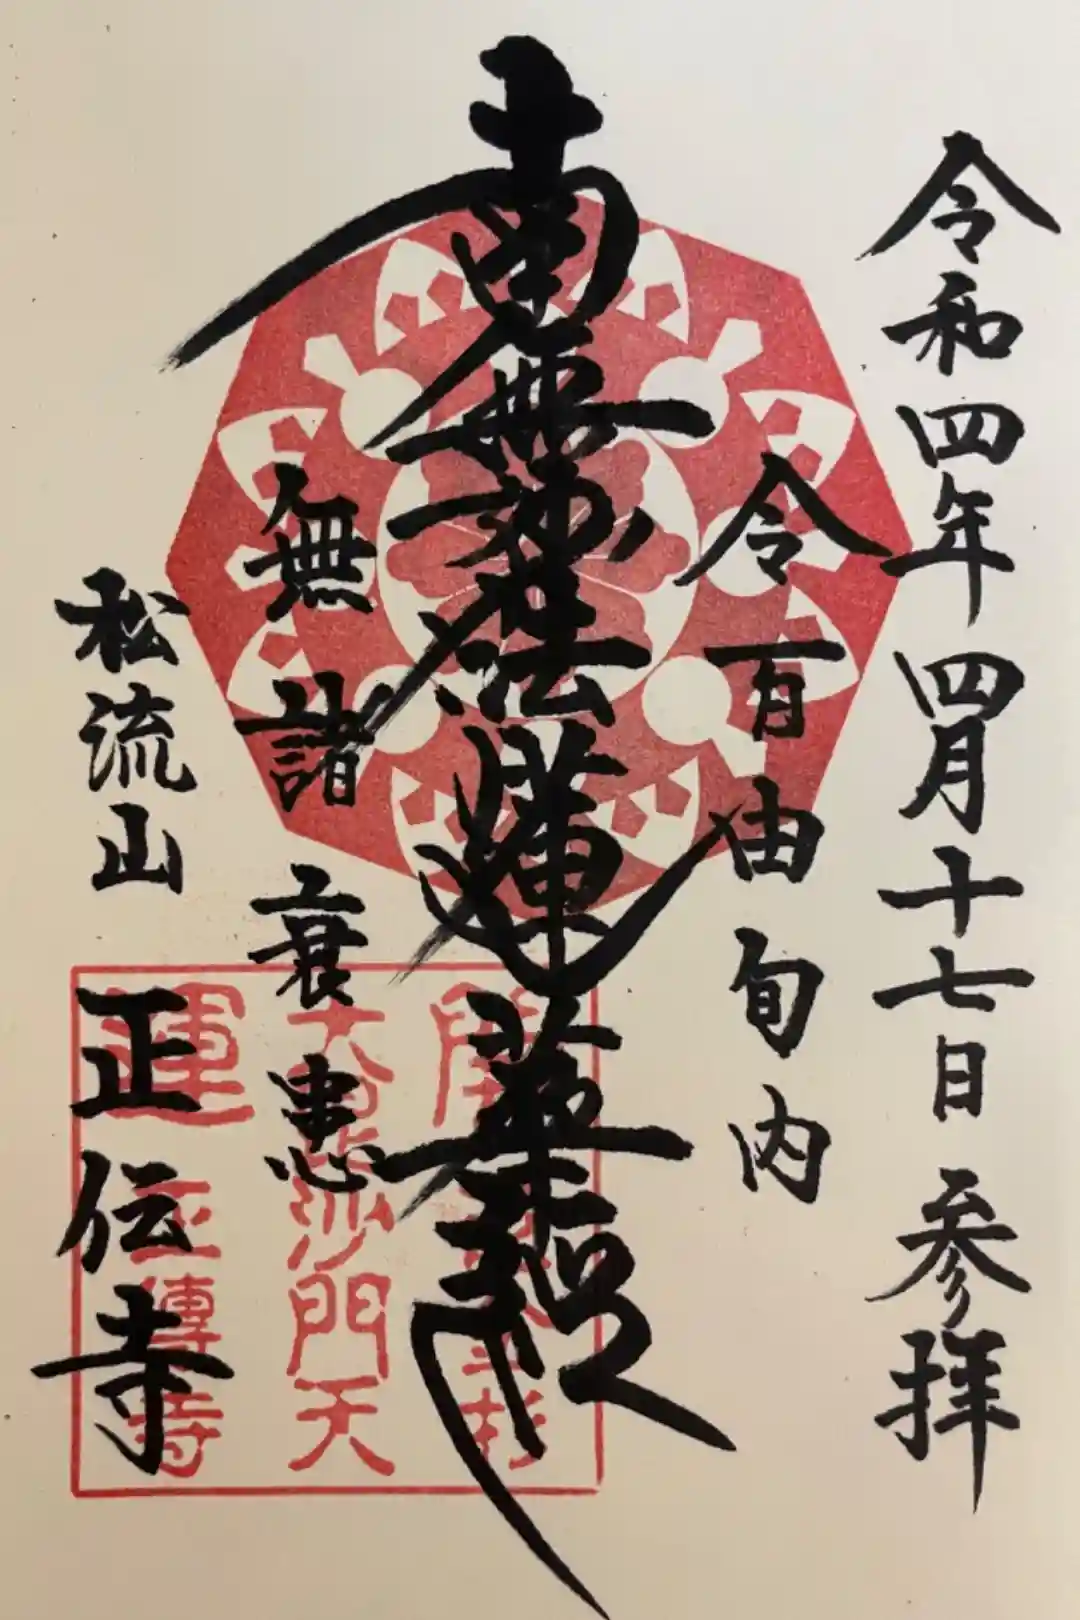 令和四年四月十七日 参拝
令百由旬内
南無妙法蓮華経
無諸衰患
松流山
正伝寺
毘沙門天
正傳寺